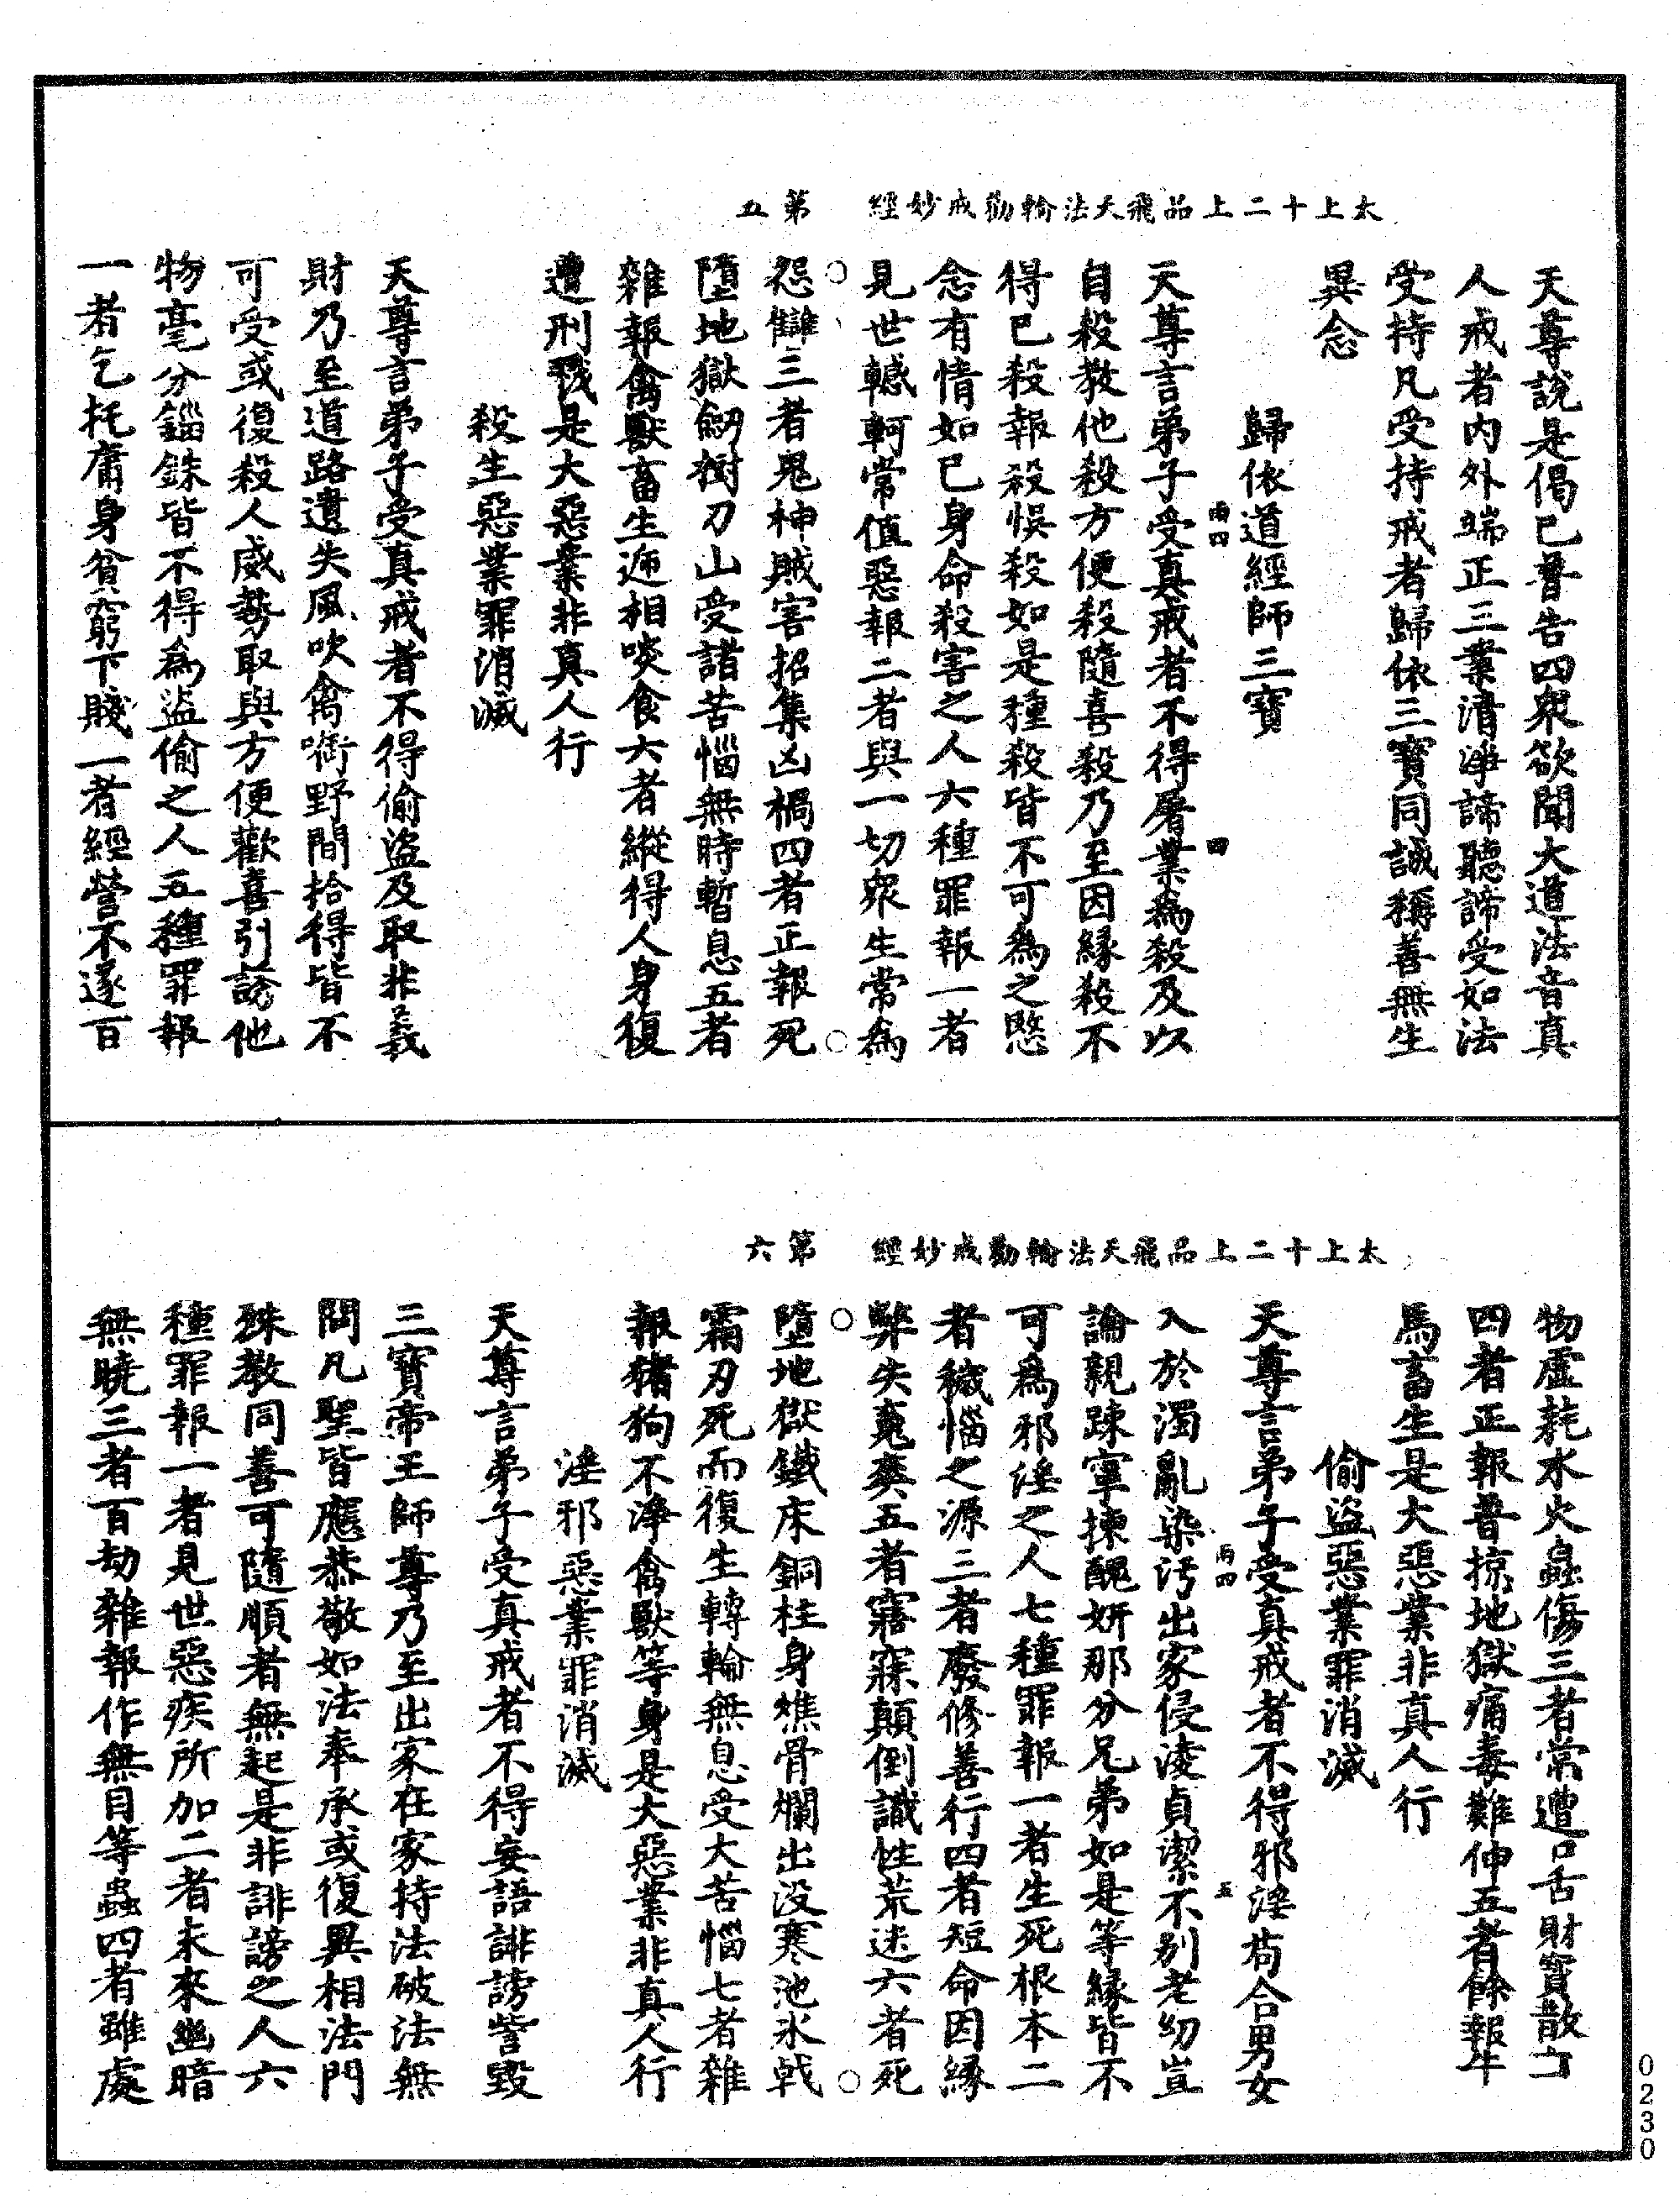 太上十二上品飛天法輪勸戒妙經　第五
天尊說是偈已普告四衆欲聞大道法音真
人戒者内外端正三業清淨諦聽諦受如法
受持凡受持戒者歸依三寶同誠稱善無生
異念
歸依道經師三寶
天尊言弟子受真戒者不得屠業為殺及以
自殺教他殺方便殺隨喜殺乃至因緣殺不
得已殺報殺悞殺如是種殺皆不可為之愍
念有情如己身命殺害之人六種罪報一者
見世轗軻常值惡報二者與一切衆生常為
怨讎三者鬼神賊害招集凶禍四者正報死
墮地獄劒樹刀山受諸苦惱無時暫息五者
雜報禽獸畜生遞相啖食六者縱得人身復
遭刑戮是大惡業非真人行
殺生惡業罪消滅
天尊言弟子受真戒者不得偷盜及取非義
財乃至道路遺失風吹禽啣野間拾得皆不
可受或復殺人威勢取與方便歡喜引誘他
物毫分錙銖皆不得為盜偷之人五種罪報
一者乞托庸身貧窮下賤二者經營不遂百
兩四
四
太上十二上品飛天法輪勸戒妙經　第六
物虛耗水火蟲傷三者常遭口舌財寶散亡
四者正報普掠地獄痛毒難伸五者餘報牛
馬畜生是大惡業非真人行
偷盜惡業罪消滅
天尊言弟子受真戒者不得邪淫苟合男女
入於濁亂染汚出家侵淩貞潔不别老幼豈
論親踈寧揀醜妍那分兄弟如是等緣皆不
可為邪淫之人七種罪報一者生死根本二
者穢惱之源三者廢修善行四者短命因緣
弊失䰟爽五者寤寐顛倒識性荒迷六者死
墮地獄鐵床銅柱身燋骨爛出没寒池氷戟
霜刃死而復生轉輪無息受大苦惱七者雜
報猪狗不淨禽獸等身是大惡業非真人行
淫邪惡業罪消滅
天尊言弟子受真戒者不得妄語誹謗訾毀
三寶帝王師尊乃至出家在家持法破法無
問凡聖皆應恭敬如法奉承或復異相法門
殊教同善可隨順者無起是非誹謗之人六
種罪報一者見世惡疾所加二者未來幽暗
無曉三者百劫雜報作無目等蟲四者雖處
兩四
五
0230